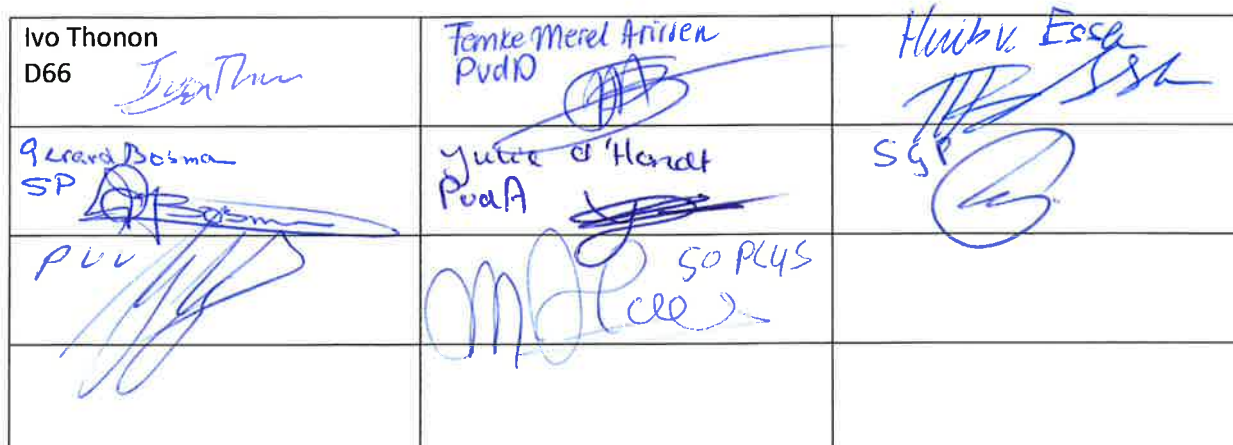 Ivo Thonon
D66
Femke Merel Arissen
PvdD
Huib v. Essen
Gerard Bosma
SP
Bosma
Julie d'Hondt
PvdA
SGP
PVV
50 PLUS